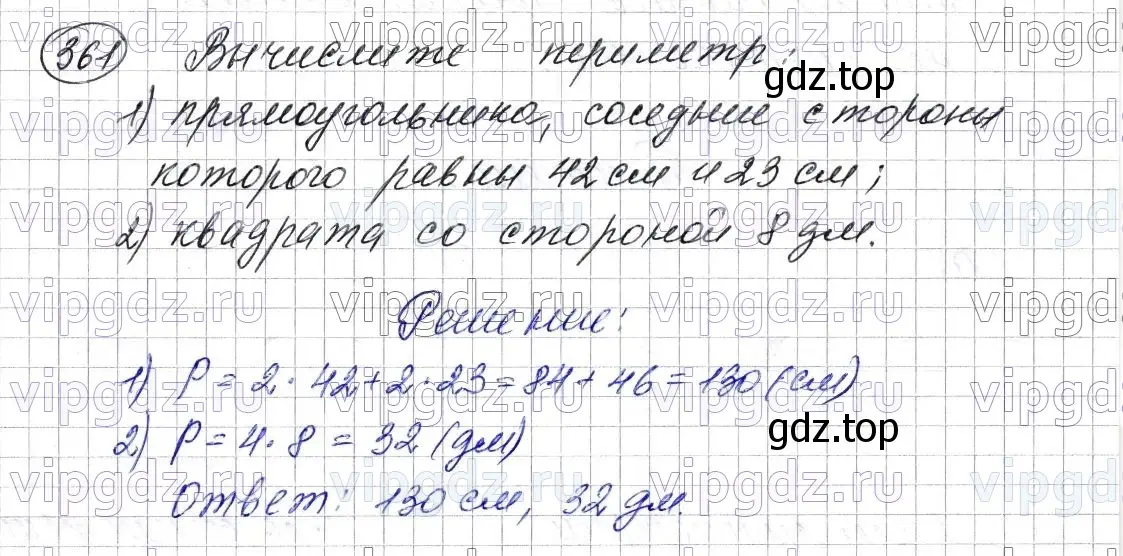 361 Вычислите периметр:
1) прямоугольника, соседние стороны
которого равны 42 см и 23 см;
2) квадрата со стороной 8 дм.
Решение:
1) P = 2 · 42 + 2 · 23 = 84 + 46 = 130 (см)
2) P = 4 · 8 = 32 (дм)
Ответ: 130 см, 32 дм.
gdz.top
gdz.top
vipgdz.ru